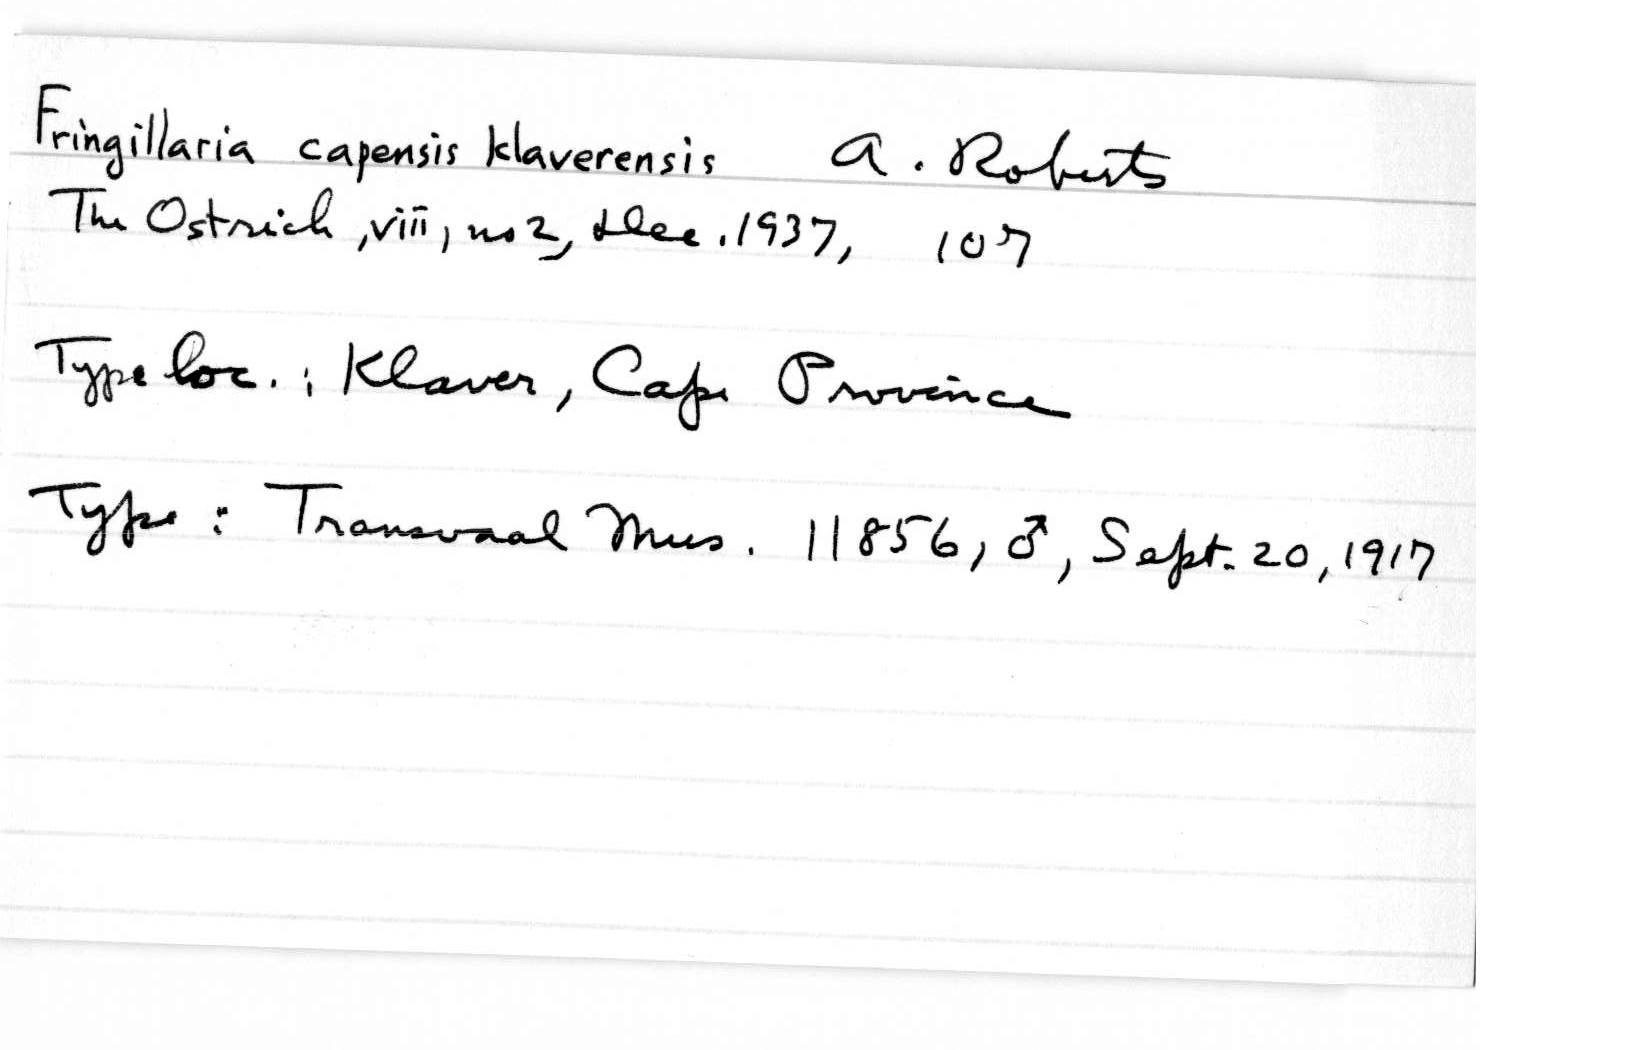 Fringillaria capensis klaverensis A. Roberts
The Ostrich, viii, no 2, Dec. 1937, 107
Type loc. : Klaver, Cape Province
Type : Transvaal Mus. 11856, ♂, Sept. 20, 1917